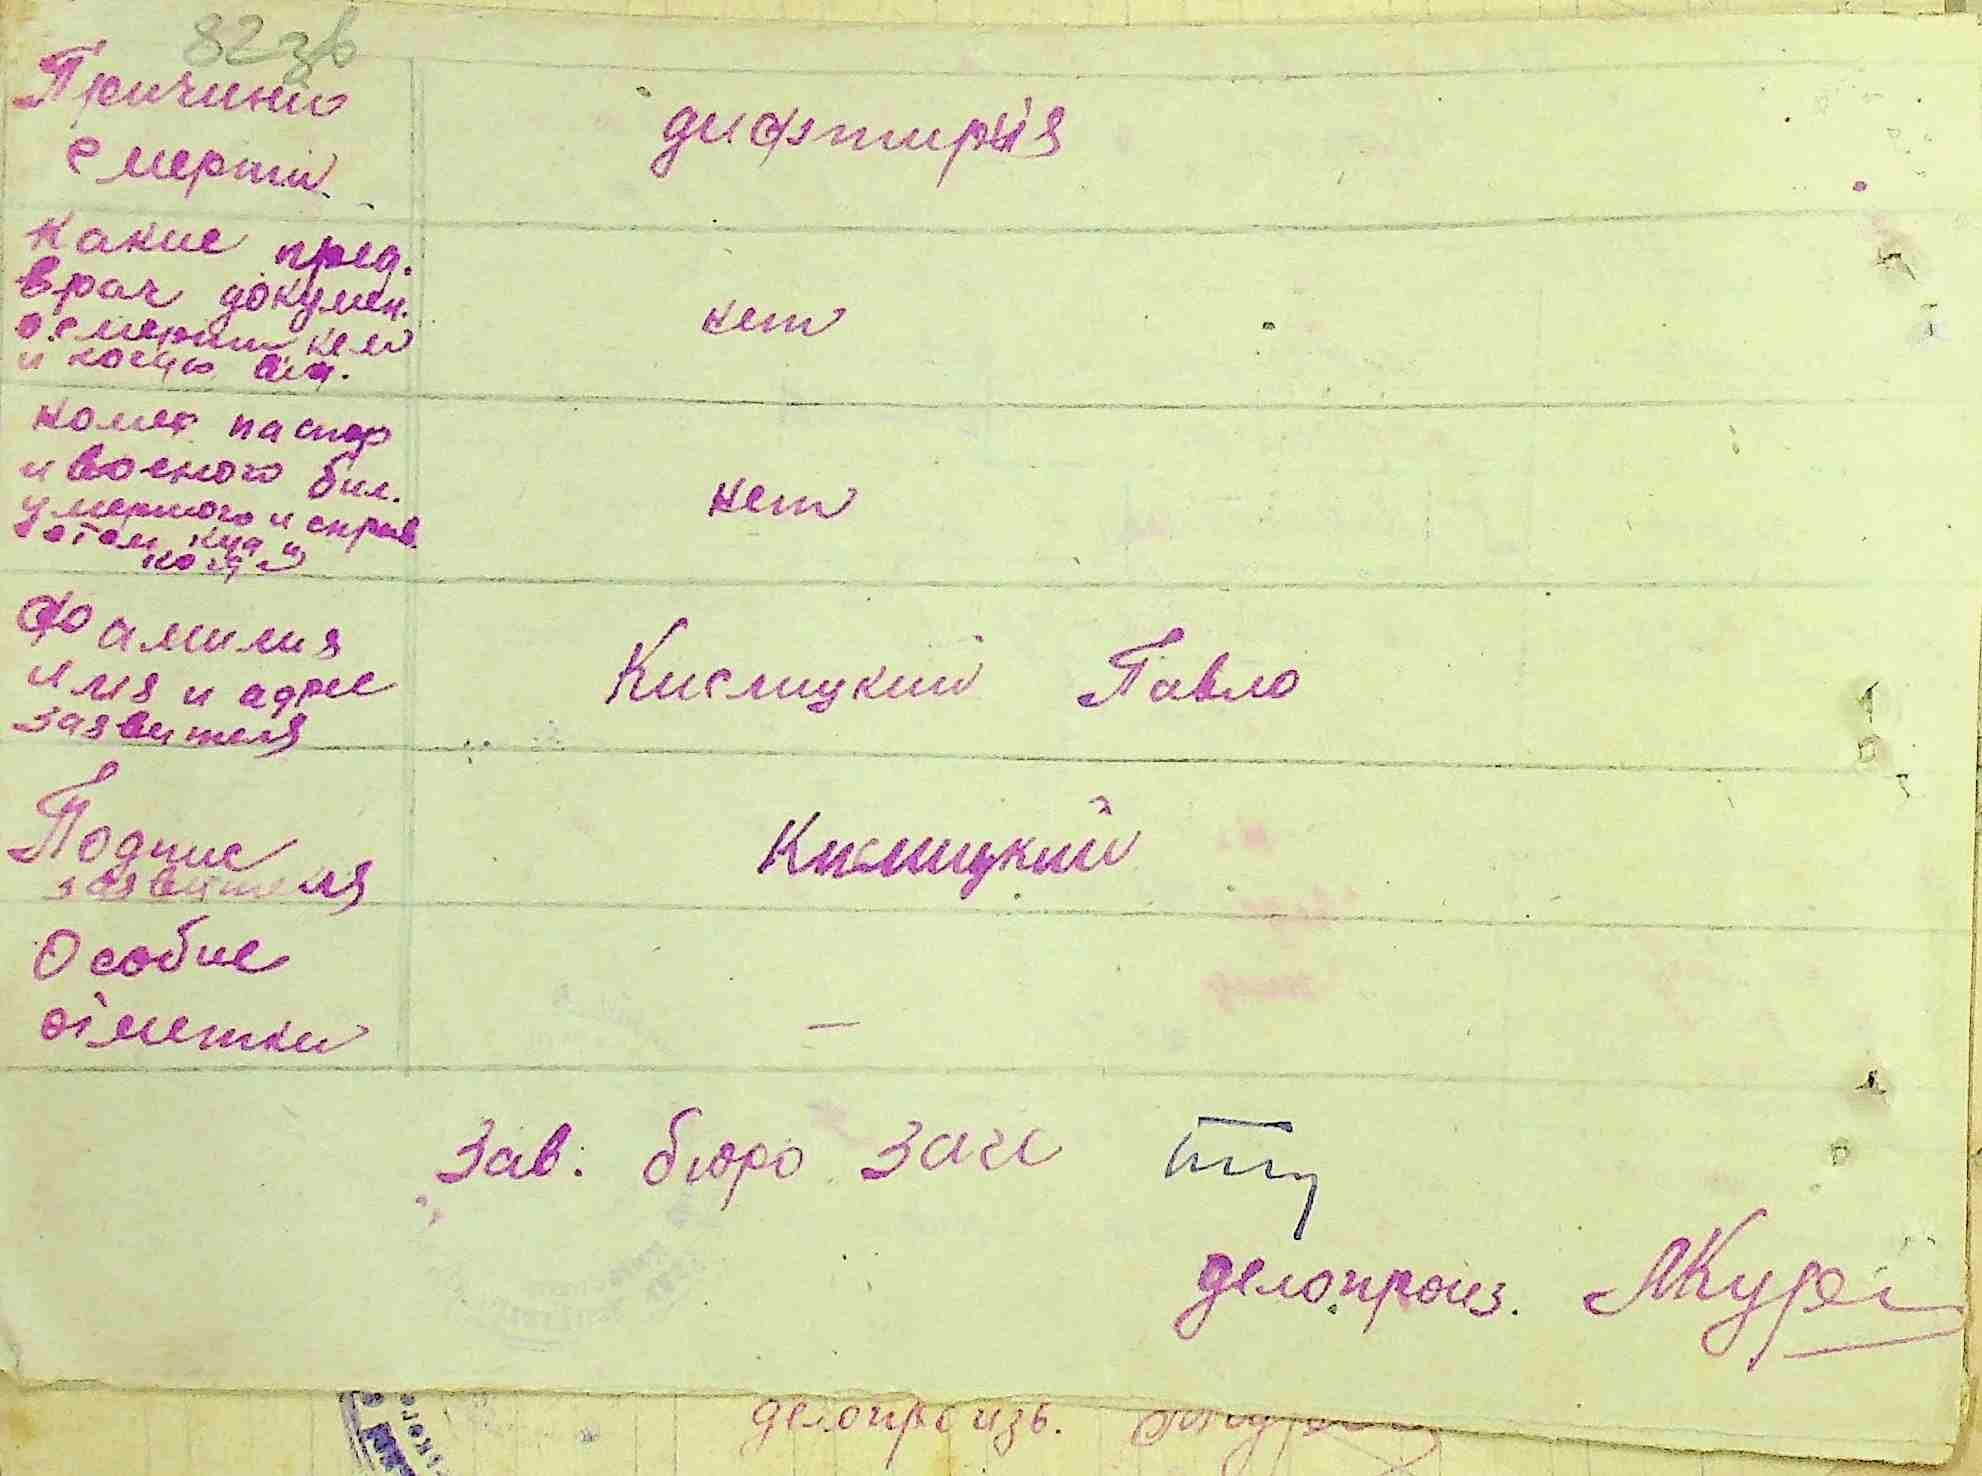 82зв
Причини
смерти
дифтирія
Какие пред.
врач докумен.
о смерти кем
и когда выд.
нет
номер паспор
и военого бил.
умершого и справ
о том куда и
когда
нет
Фамилия
имя и адрес
заявителя
Кислицкий Павло
Подпис
заявителя
Кислицкий
Особие
отметки
—
Зав. бюро загс
делопроиз.
делопроизв.